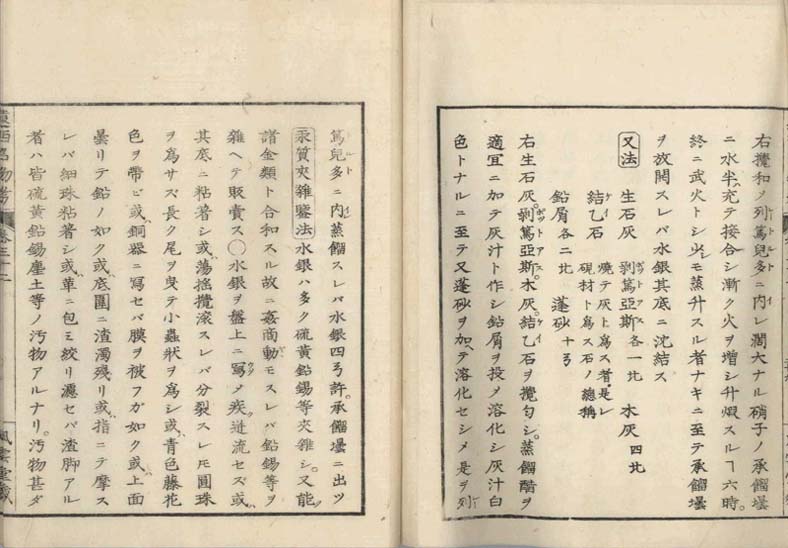 右攪和ノ列篤兒多ニ内レ濶大ナル硝子ノ承餾壜
ニ水半ヲ充テ接合シ漸ク火ヲ増シ升煆スルヿ六時。
終ニ武火トシ少モ蒸升スル者ナキニ至テ承餾壜
ヲ放開スレバ水銀其底ニ沈結ス
又法 生石灰 剥篤亜斯各一比 木灰四比
結乙石 焼テ灰ト為ス者是レ硯材ト為ス石ノ總稱
鉛屑各二比 蓬砂十ゟ
右生石灰。剥篤亜斯。木灰。結乙石ヲ攪匀シ。蒸餾醋ヲ
適宜ニ加テ灰汁ト作シ鉛屑ヲ投メ溶化シ灰汁白
色トナルニ至テ又蓬砂ヲ加テ溶化セシメ是ヲ列
篤兒多ニ内蒸餾スレバ水銀四ゟ許。承餾壜ニ出ツ
汞質夾雜鑒法 水銀ハ多ク硫黄鉛錫等夾雜シ。又能
諸金類ト合和スル故ニ姦商動モスレバ鉛錫等ヲ
雜ヘテ販賣ス〇水銀ヲ盤上ニ寫メ疾迸流セズ或
其底ニ粘著シ或蕩揺攪滚スレバ分裂スレ𪜈圓珠
ヲ為サズ長ク尾ヲ曳テ小蟲状ヲ為シ或青色藤花
色ヲ帯ビ或銅器ニ寫セバ膜ヲ被フガ如ク或上面
曇リテ鉛ノ如ク或底圍ニ渣濁残リ或指ニテ摩ス
レバ細珠粘著シ或革ニ包ミ絞リ濾セバ渣脚アル
者ハ皆硫黄鉛錫塵土等ノ汚物アルナリ。汚物甚ダ